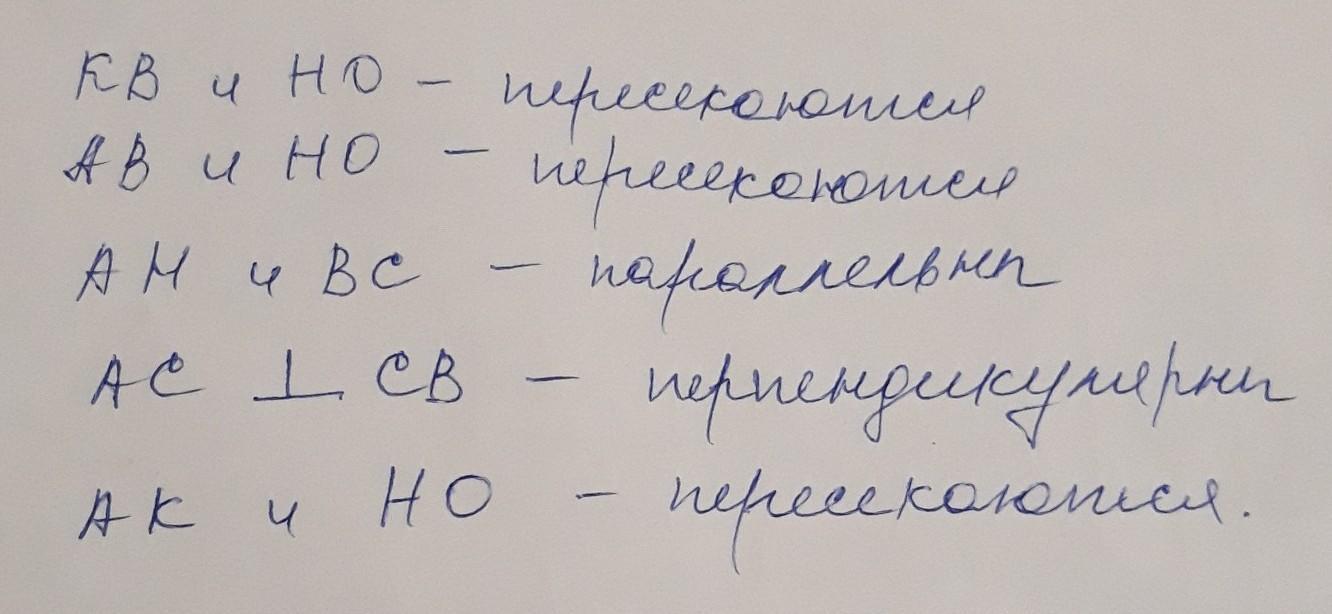 КВ и НО – пересекаются
АВ и НО – пересекаются
АН и ВС – параллельны
АС ⊥ СВ – перпендикулярны
АК и НО – пересекаются.